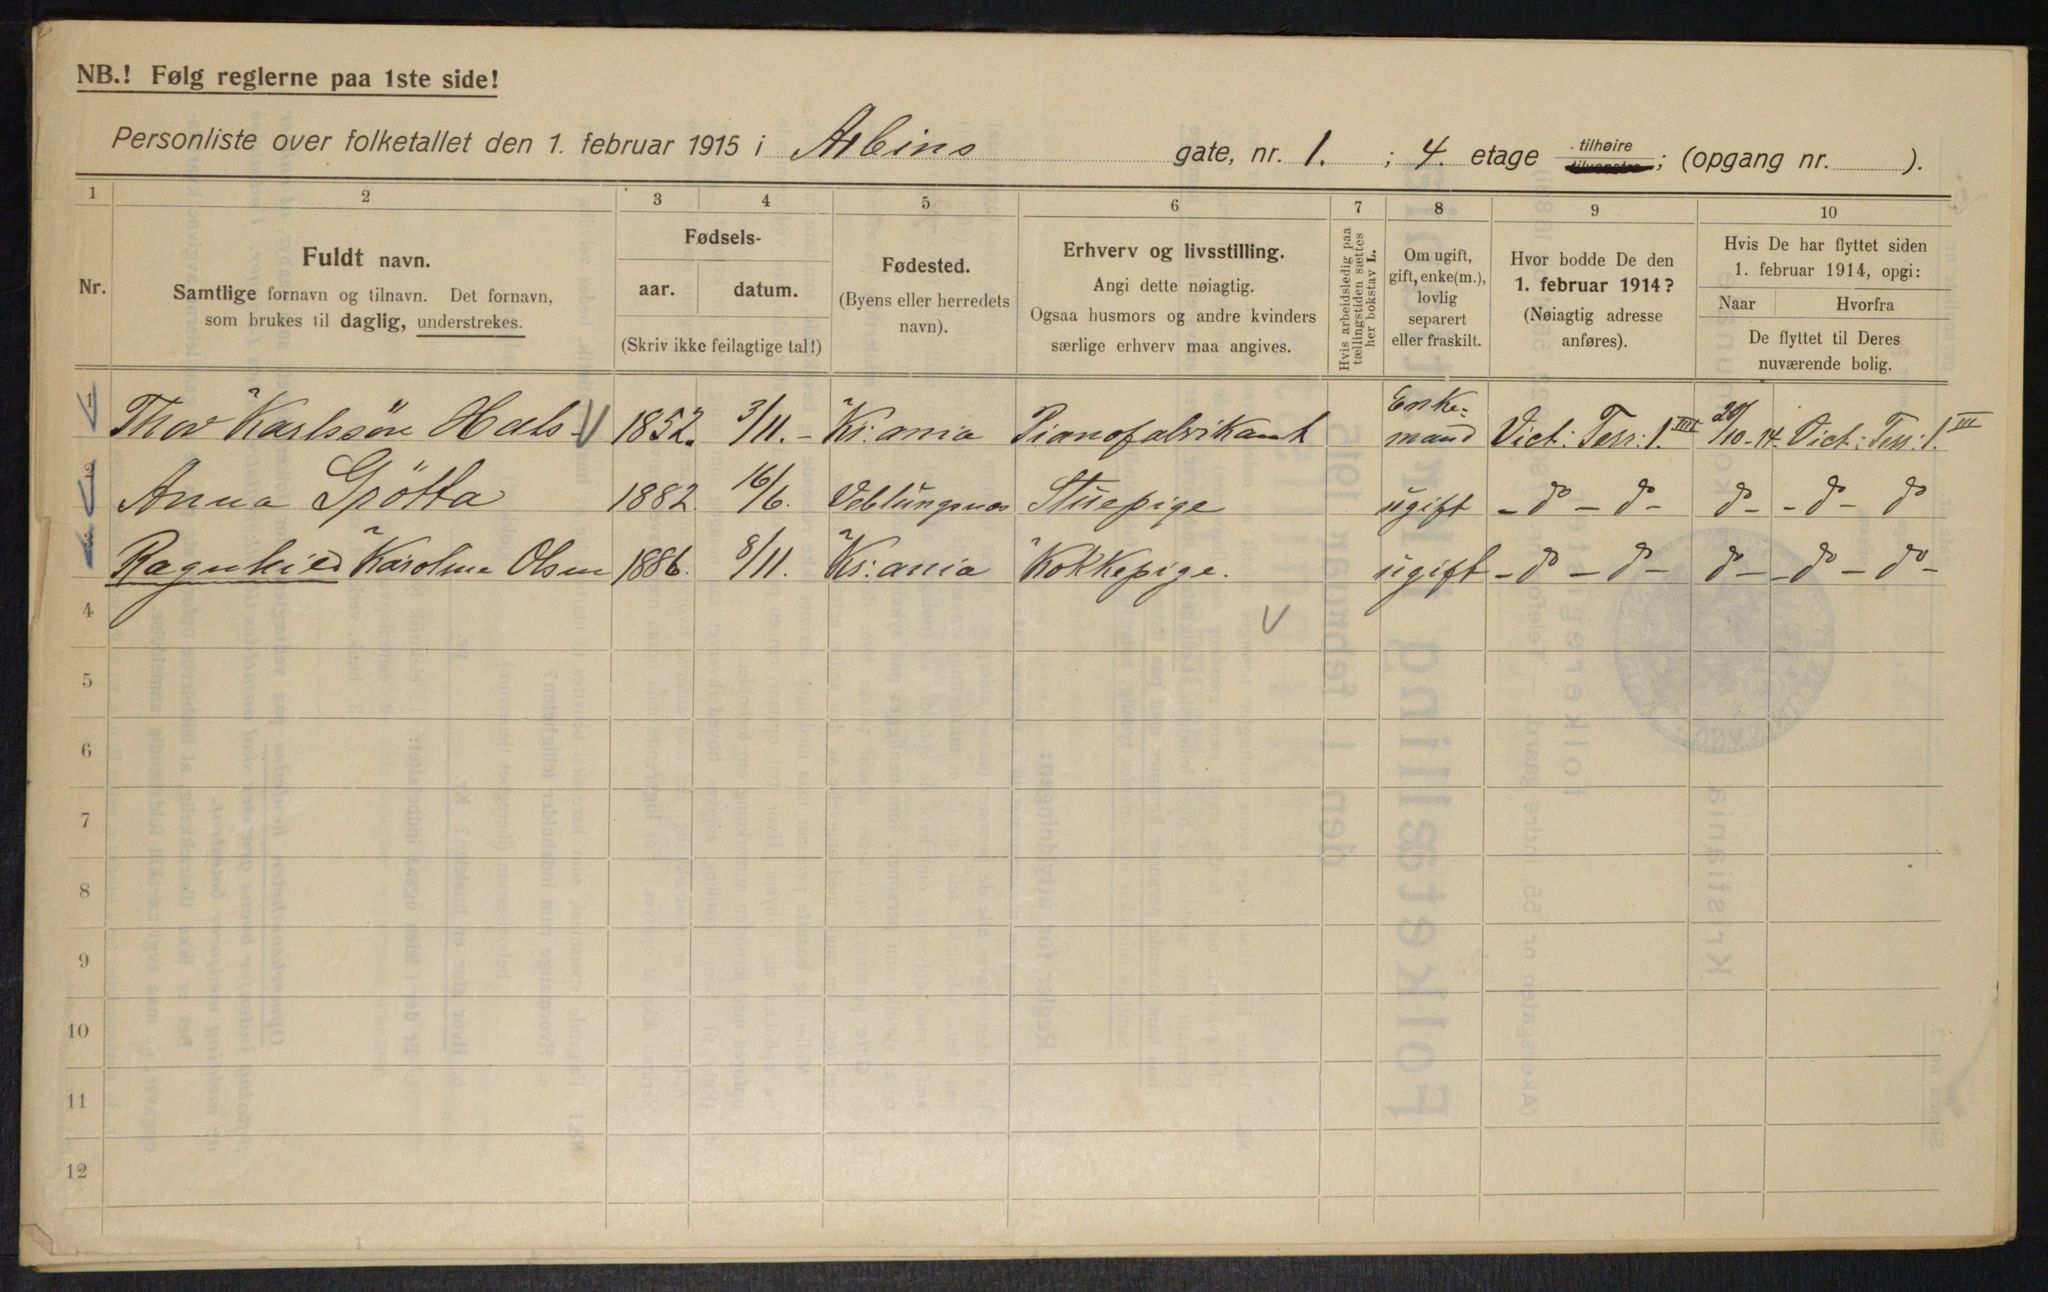 NB.! Følg reglerne paa 1ste side!
Personliste over folketallet den 1. februar 1915 i Arbins gate, nr. 1. ; 4. etage tilhøire tilvenstre; (opgang nr. ).
1 2 3 4 5 6 7 8 9 10
Nr.
Fuldt navn.
Samtlige fornavn og tilnavn. Det fornavn,
som brukes til daglig, understrekes.
Fødsels-
aar. datum.
(Skriv ikke feilagtige tal!)
Fødested.
(Byens eller herredets
navn).
Erhverv og livsstilling.
Angi dette nøiagtig.
Ogsaa husmors og andre kvinders
særlige erhverv maa angives.
Hvis arbeidsledig paa
tællingstiden sættes
her bokstav L.
Om ugift,
gift, enke(m.),
lovlig
separert
eller fraskilt.
Hvor bodde De den
1. februar 1914?
(Nøiagtig adresse
anføres).
Hvis De har flyttet siden
1. februar 1914, opgi:
Naar Hvorfra
De flyttet til Deres
nuværende bolig.
1 Thor Karlsön Hals 1852. 3/11. - Kr:ania Pianofabrikant Enke-mand Vict: Terr: 1. III 20/10-14. Vict: Terr: 1. III
2 Anna Grötta 1882. 16/6. Veblungsnes Stuepige ugift - do - do - do - - do - do
3 Ragnhied Karoline Olsen 1886. 8/11. Kr:ania Kokkepige. ugift - do - do - do - - do - do -
4
5
6
7
8
9
10
11
12